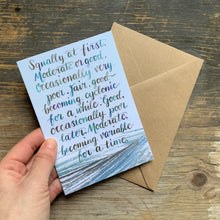 Squally at first.
Moderate or good.
Occasionally very
poor. Fair, good -
becoming cyclonic
for a while. Good,
occasionally poor
later. Moderate,
becoming variable
for a time.